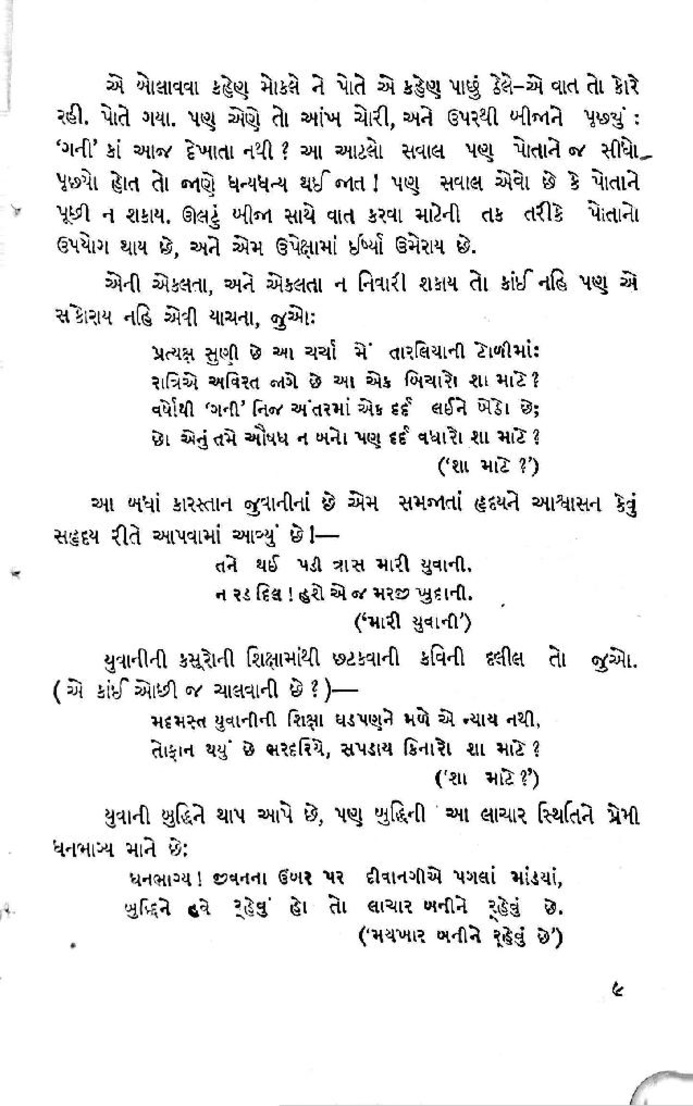 એ બોલાવવા કહેણ મોકલે ને પોતે એ કહેણ પાછું ઠેલે–એ વાત તો કોરે
રહી. પોતે ગયા. પણ એણે તો આંખ ચોરી, અને ઉપરથી બીજાને પૂછ્યું :
‘ગની’ કાં આજ દેખાતા નથી ? આ આટલો સવાલ પણ પોતાને જ સીધો
પૂછયો હોત તો જાણે ધન્યધન્ય થઈ જાત ! પણ સવાલ એવો છે કે પોતાને
પૂછી ન શકાય. ઊલટું બીજા સાથે વાત કરવા માટેની તક તરીકે પોતાનો
ઉપયોગ થાય છે, અને એમ ઉપેક્ષામાં ઈર્ષ્યા ઉમેરાય છે.
એની એકલતા, અને એકલતા ન નિવારી શકાય તો કાંઈ નહિ પણ એ
સકોરાય નહિ એવી યાચના, જુઓ:
પ્રત્યક્ષ સુણી છે આ ચર્ચા મેં તારલિયાની ટોળીમાં:
રાત્રિએ અવિરત જાગે છે આ એક બિચારો શા માટે ?
વર્ષોથી ‘ગની’ નિજ અંતરમાં એક દર્દ લઈને બેઠો છે;
છો એનું તમે ઔષધ ન બનો પણ દર્દ વધારો શા માટે ?
(‘શા માટે ?’)
આ બધાં કારસ્તાન જુવાનીનાં છે એમ સમજાતાં હૃદયને આશ્વાસન કેવું
સહૃદય રીતે આપવામાં આવ્યું છે !—
તને થઈ પડી ત્રાસ મારી યુવાની.
ન રડ દિલ ! હશે એ જ મરજી ખુદાની.
(‘મારી યુવાની’)
યુવાનીની કસૂરોની શિક્ષામાંથી છટકવાની કવિની દલીલ તો જુઓ.
( એ કાંઈ ઓછી જ ચાલવાની છે ? )—
મદમસ્ત યુવાનીની શિક્ષા ઘડપણને મળે એ ન્યાય નથી,
તોફાન થયું છે ભરદરિયે, સપડાય કિનારો શા માટે ?
(‘શા માટે ?’)
યુવાની બુદ્ધિને થાપ આપે છે, પણ બુદ્ધિની આ લાચાર સ્થિતિને પ્રેમી
ધનભાગ્ય માને છે:
ધનભાગ્ય ! જીવનના ઉંબર પર દીવાનગીએ પગલાં માંડયાં,
બુદ્ધિને હવે ર્‌હેવું હો તો લાચાર બનીને ર્‌હેવું છે.
(‘મયખાર બનીને ર્‌હેવું છે’)
૯